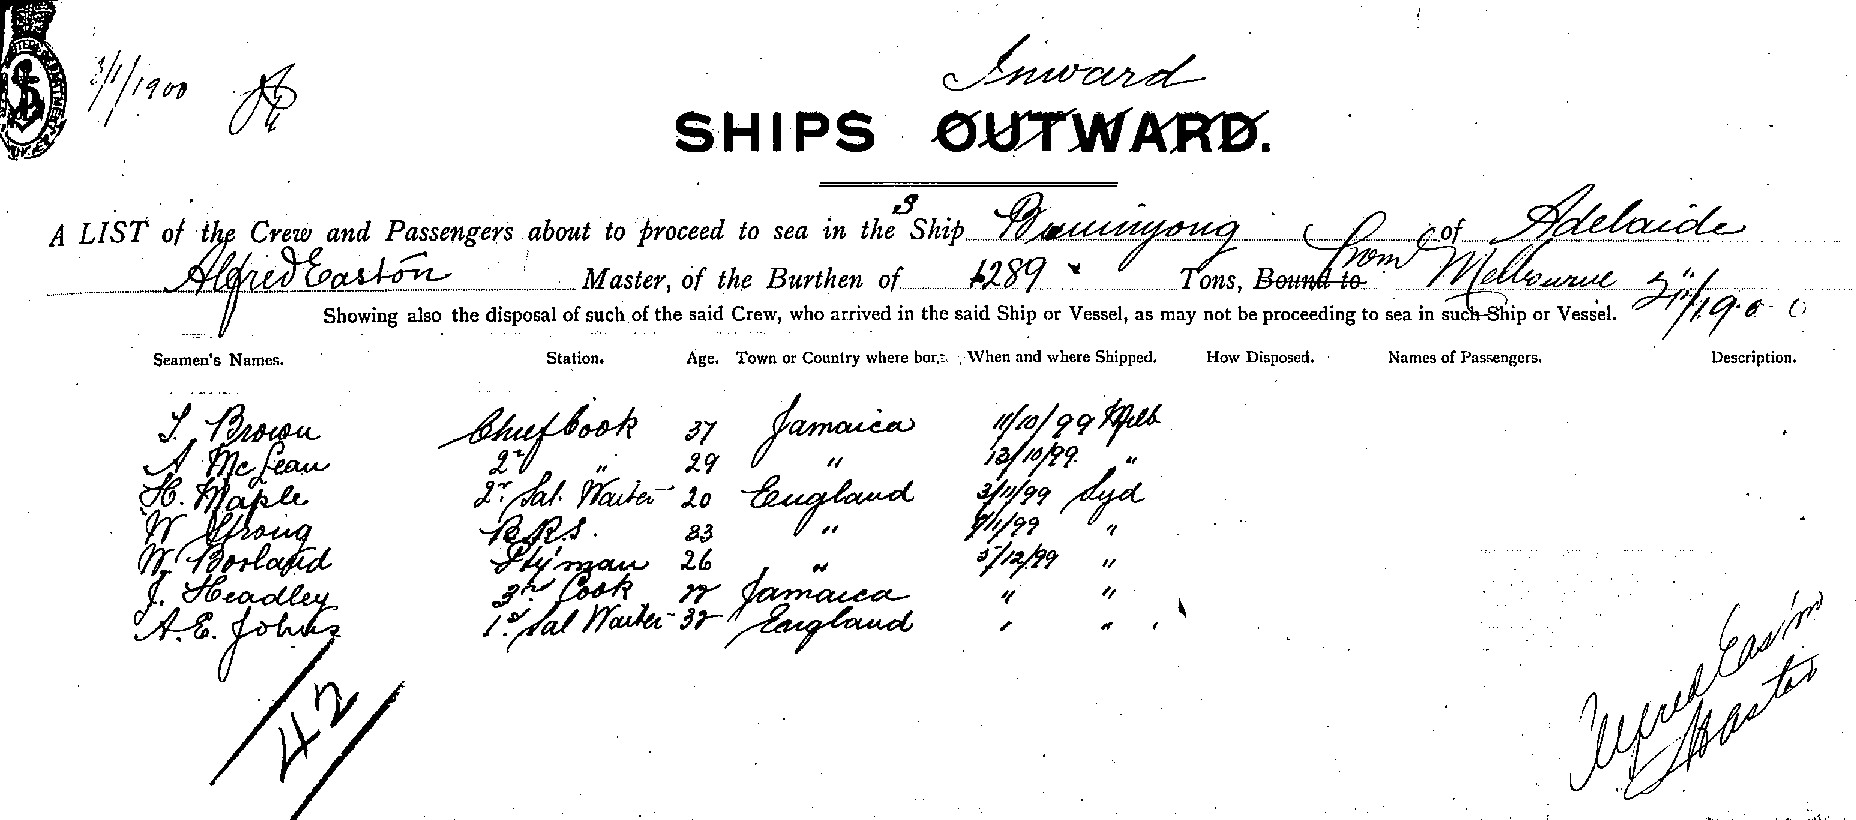 3/1/1900
Inward
SHIPS OUTWARD.
A LIST of the Crew and Passengers about to proceed to sea in the S Ship Buninyong of Adelaide
Alfred Easton Master, of the Burthen of 1289 Tons, Bound to from Melbourne 2/1/1900
Showing also the disposal of such of the said Crew, who arrived in the said Ship or Vessel, as may not be proceeding to sea in such Ship or Vessel.
Seamen's Names. Station. Age. Town or Country where born. When and where Shipped. How Disposed. Names of Passengers. Description.
Brown Chief Cook 37 Jamaica 11/10/99 Melb
A McLean 2nd " 29 " 13/10/99 "
H. Maple 2nd Sal. Waiter 20 England 3/11/99 Syd
W Strong R.R.S. 33 " /11/99 "
W. Borland Sty'man 26 " 5/12/99 "
J. Headley 3rd Cook 22 Jamaica " "
A. E. Johns 1st Sal Waiter 32 England " "
42
Alfred Easton
Master